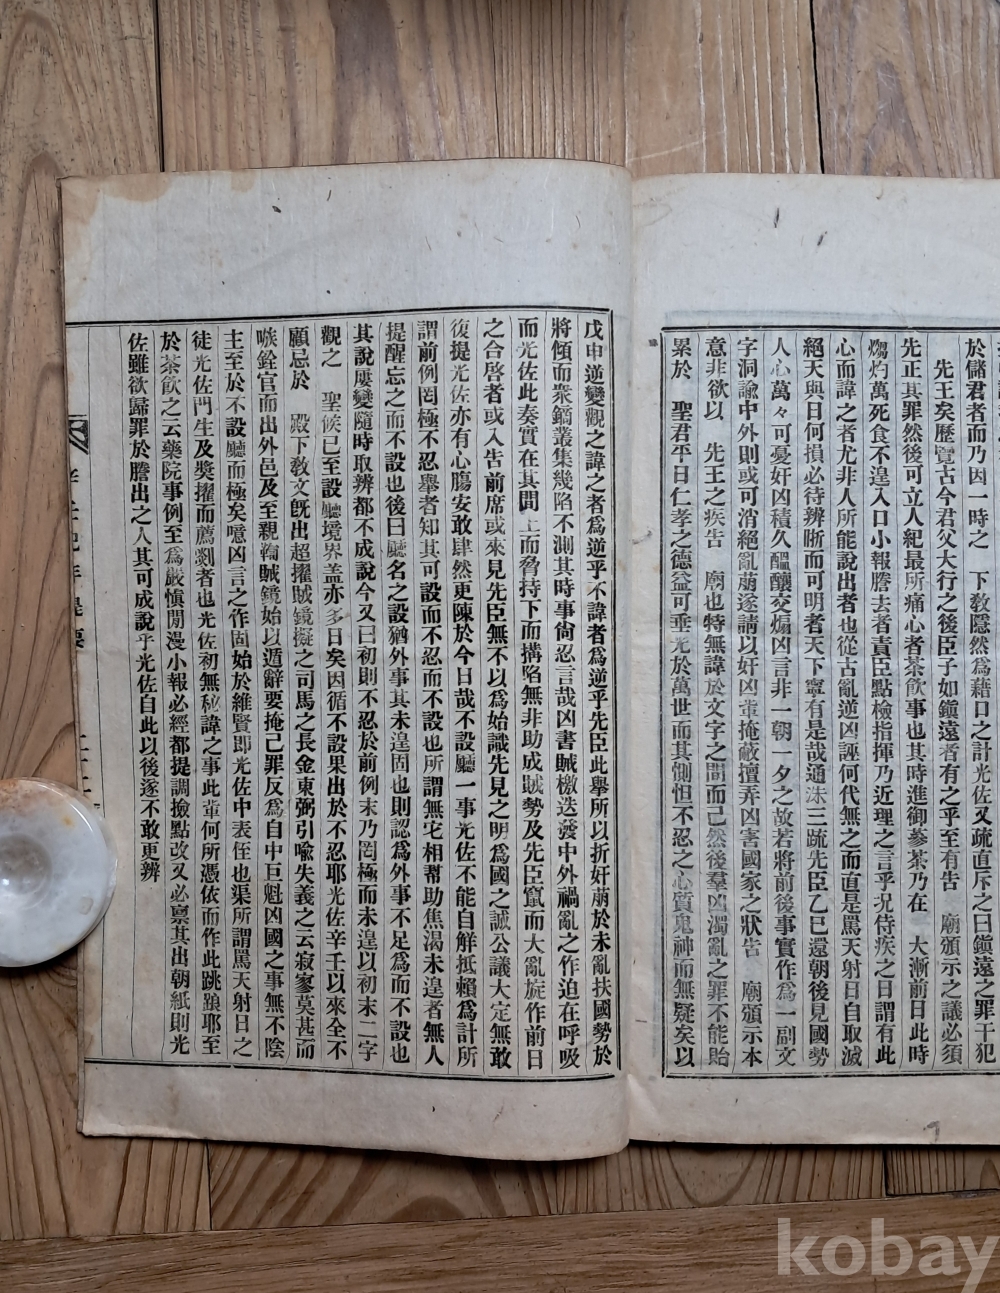 於儲君者而乃因一時之　下敎隱然爲藉口之計光佐又疏直斥之曰鎭遠之罪干犯
先王矣歷覽古今君父大行之後臣子如鎭遠者有之乎至有告　廟頒示之議必須
先正其罪然後可立人紀最所痛心者茶飮事也其時進御蔘茶乃在　大漸前日此時
煼灼萬死食不遑入口小報謄去者責臣點檢指揮乃近理之言乎况侍疾之日謂有此
心而諱之者尤非人所能說出者也從古亂逆凶誣何代無之而直是罵天射日自取滅
絕天與日何損必待辨晣而可明者天下寧有是哉通洙三疏先臣乙巳還朝後見國勢
人心萬々可憂奸凶積久醞釀交煽凶言非一朝一夕之故若將前後事實作爲一副文
字洞諭中外則或可消絕亂萠遂請以奸凶軰掩蔽擅弄凶害國家之狀告　廟頒示本
意非欲以　先王之疾告　廟也特無諱於文字之間而已然後羣凶濁亂之罪不能貽
累於　聖君平日仁孝之德益可垂光於萬世而其惻怛不忍之心質鬼神而無疑矣以
戊申逆變觀之諱之者爲逆乎不諱者爲逆乎先臣此擧所以折奸萠於未亂扶國勢於
將傾而衆鏑叢集幾陷不測其時事尙忍言哉凶書賊檄迭發中外禍亂之作迫在呼吸
而光佐此奏實在其間上而脅持下而搆陷無非助成賊勢及先臣竄而大亂旋作前日
之合啓者或入告前席或來見先臣無不以爲始識先見之明爲國之誠公議大定無敢
復提光佐亦有心膓安敢肆然更陳於今日哉不設廳一事光佐不能自解抵賴爲計所
謂前例罔極不忍擧者知其可設而不忍而不設也所謂無它相幇助焦渴未遑者無人
提醒忘之而不設也後曰廳名之設猶外事其未遑固也則認爲外事不足爲而不設也
其說屢變隨時取辨都不成說今又曰初則不忍於前例末乃罔極而未遑以初末二字
觀之　聖候已至設廳境界盖亦多日矣因循不設果出於不忍耶光佐辛壬以來全不
顧忌於　殿下敎文旣出超擢賊鏡擬之司馬之長金東弼引喩失義之云寂寥莫甚而
嗾銓官而出外邑及至親鞫賊鏡始以遁辭要掩己罪反爲自中巨魁凶國之事無不陰
主至於不設廳而極矣噫凶言之作固始於維賢即光佐中表侄也渠所謂罵天射日之
徒光佐門生及奬擢而薦剡者也光佐初無秘諱之事此軰何所憑依而作此跳踉耶至
於茶飮之云藥院事例至爲嚴愼閒漫小報必經都提調撿點改又必禀其出朝紙則光
佐雖欲歸罪於謄出之人其可成說乎光佐自此以後遂不敢更辨
kobay